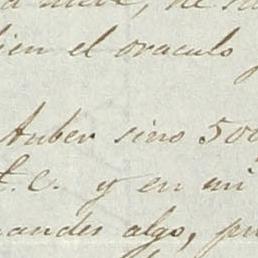 bien el oraculo
Auber sino 500
f. c. y en mi
mandes algo, pu